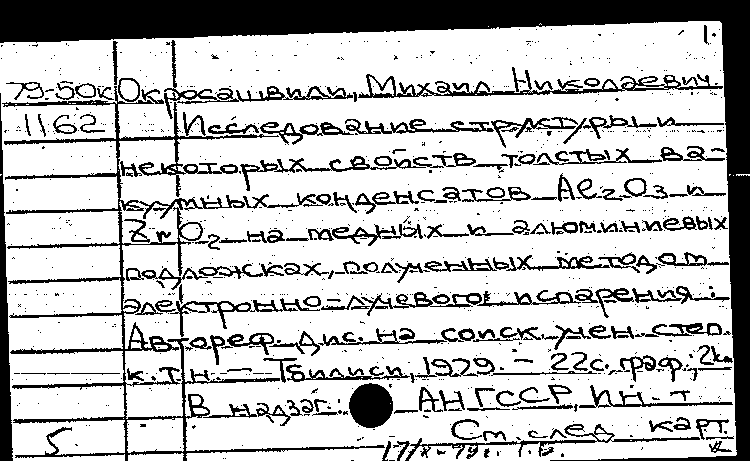 1.
79-50к Окросашвили, Михаил Николаевич.
1162 Исследование структуры и
некоторых свойств толстых ва-
куумных конденсатов Al2O3 и
ZrO2 на медных и алюминиевых
подложках, полученных методом
электронно-лучевого испарения :
Автореф. дис. на соиск. учен. степ.
к.т.н. — Тбилиси, 1979. — 22с. граф.;
В надзаг.: АН ГССР, Ин-т
См. след. карт.
5 17/X-79г.